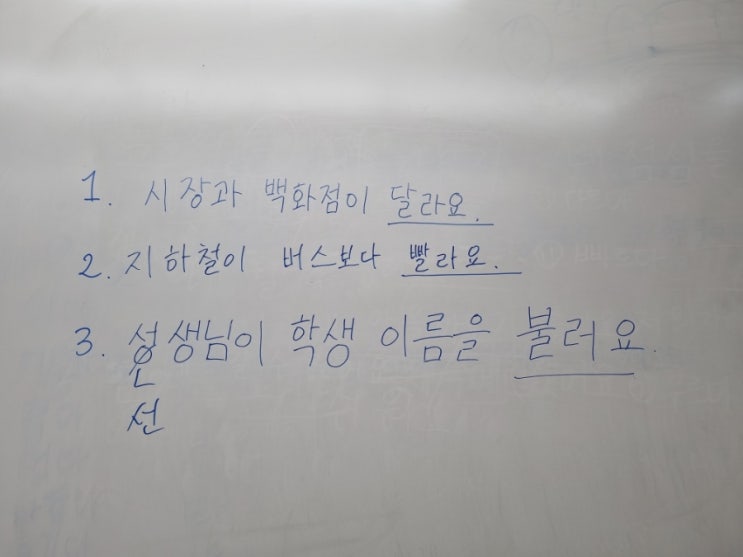 1. 시장과 백화점이 달라요.
2. 지하철이 버스보다 빨라요.
3. 생님이 학생 이름을 불러요.
선